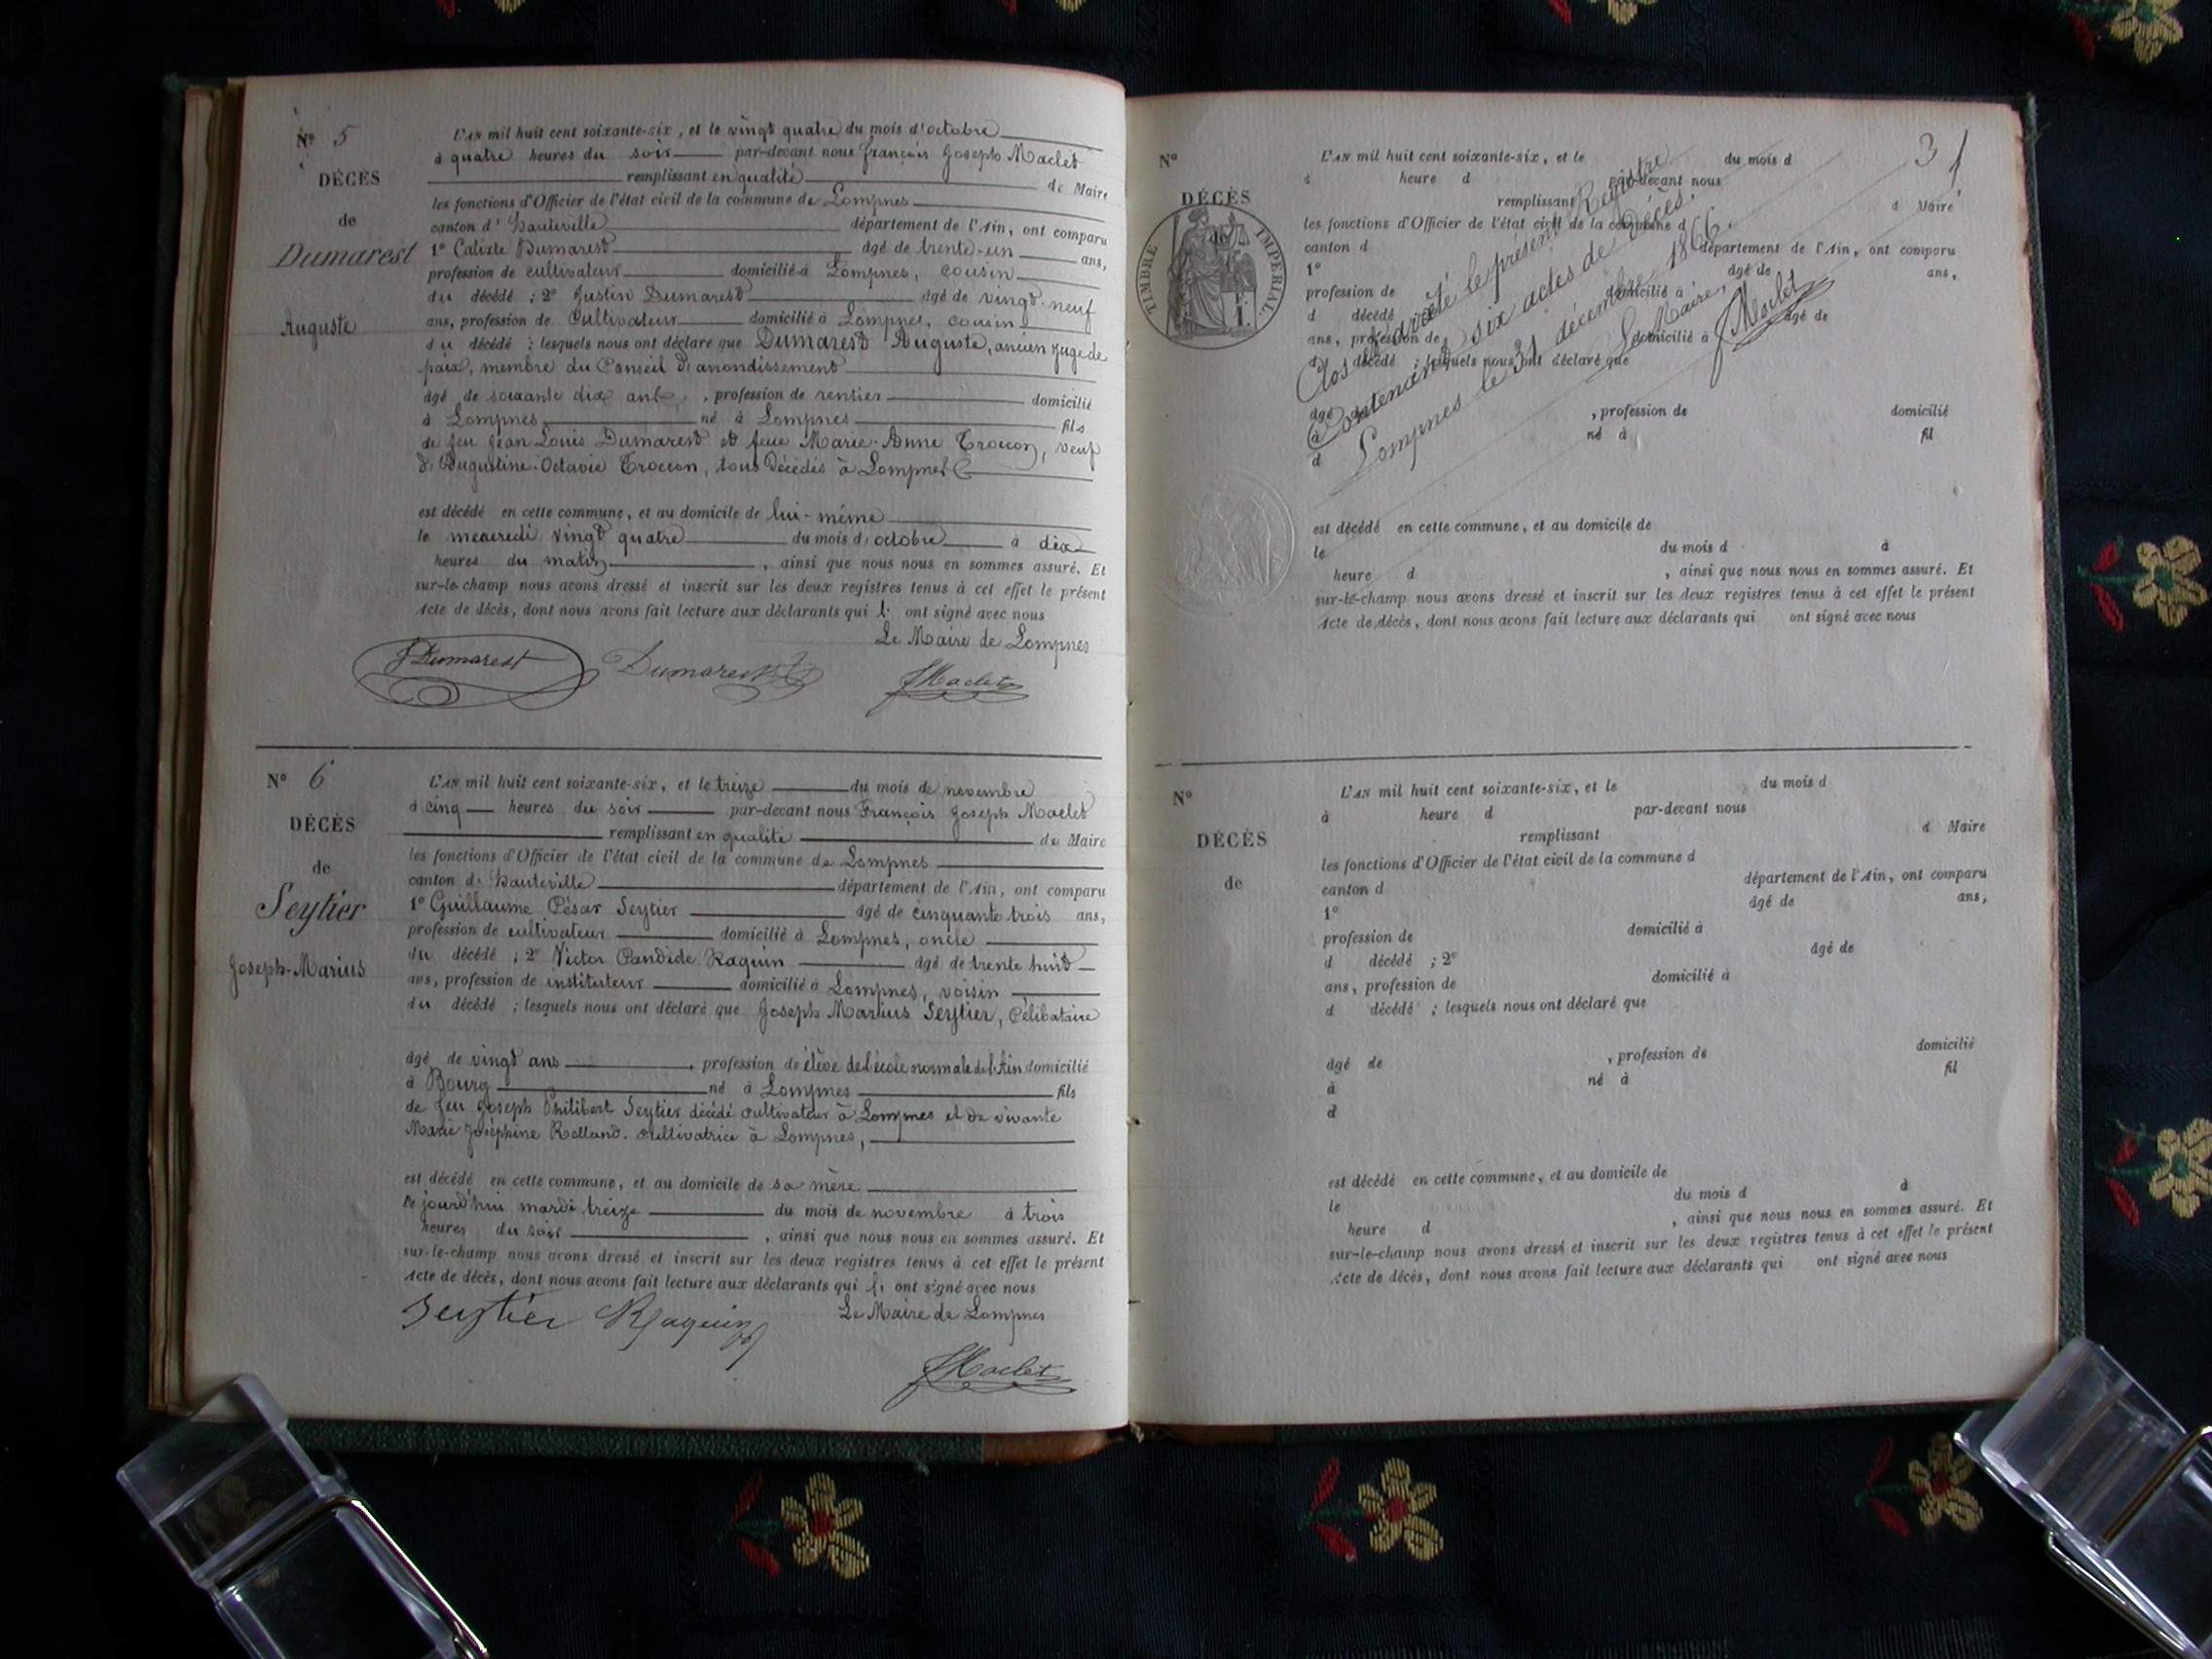 N° 5
DÉCÈS
de
Dumarest
Auguste
L'AN mil huit cent soixante-six, et le vingt quatre du mois d'octobre
à quatre heures du soir par-devant nous françois Joseph Maclet
remplissant en qualité de Maire
les fonctions d'Officier de l'état civil de la commune de Lompnes
canton d'hauteville département de l'Ain, ont comparu
1° Calixte Dumarest âgé de trente-un ans,
profession de cultivateur domicilié à Lompnes, cousin
du décédé ; 2° Justin Dumarest âgé de vingt-neuf
ans, profession de Cultivateur domicilié à Lompnes, cousin
du décédé ; lesquels nous ont déclaré que Dumarest Auguste, ancien juge de
paix, membre du Conseil d'arrondissement
âgé de soixante dix ans, profession de rentier domicilié
à Lompnes né à Lompnes fils
de feu Jean Louis Dumarest et feue Marie-Anne Troccon, veuf
d'Augustine-Octavie Troccon, tous décédés à Lompnes
est décédé en cette commune, et au domicile de lui-même
le mercredi vingt quatre du mois d'octobre à dix
heures du matin, ainsi que nous nous en sommes assuré. Et
sur-le-champ nous avons dressé et inscrit sur les deux registres tenus à cet effet le présent
Acte de décès, dont nous avons fait lecture aux déclarants qui ont signé avec nous
Le Maire de Lompnes
JDumarest Dumarest JMaclet
N° 6
DÉCÈS
de
Seytier
Joseph-Marius
L'AN mil huit cent soixante-six, et le treize du mois de novembre
à cinq heures du soir par-devant nous François Joseph Maclet
remplissant en qualité de Maire
les fonctions d'Officier de l'état civil de la commune de Lompnes
canton d'hauteville département de l'Ain, ont comparu
1° Guillaume César Seytier âgé de cinquante trois ans,
profession de cultivateur domicilié à Lompnes, oncle
du décédé ; 2° Victor Candide Raquin âgé de trente huit
ans, profession de instituteur domicilié à Lompnes, voisin
du décédé ; lesquels nous ont déclaré que Joseph Marius Seytier, Célibataire
âgé de vingt ans, profession de élève de l'école normale de l'Ain domicilié
à Bourg né à Lompnes fils
de feu Joseph Philibert Seytier décédé cultivateur à Lompnes et de vivante
Marie Joséphine Rolland. cultivatrice à Lompnes,
est décédé en cette commune, et au domicile de sa mère
jourd'hui mardi treize du mois de novembre à trois
heures du soir, ainsi que nous nous en sommes assuré. Et
sur-le-champ nous avons dressé et inscrit sur les deux registres tenus à cet effet le présent
Acte de décès, dont nous avons fait lecture aux déclarants qui ont signé avec nous
Le Maire de Lompnes
Seytier Raquin
JMaclet
3
N°
DÉCÈS
de
TIMBRE IMPÉRIAL.
L'AN mil huit cent soixante-six, et le du mois d
à heure d par-devant nous
remplissant d Maire
les fonctions d'Officier de l'état civil de la commune d
canton d département de l'Ain, ont comparu
1° âgé de ans,
profession de domicilié à
d décédé âgé de
ans, profession de domicilié à
d décédé ; lesquels nous ont déclaré que
Clos et arrêté le présent Registre
Contenant six actes de décès.
Lompnes le 31 décembre 1866.
Le Maire,
JMaclet
âgé de , profession de domicilié
à né à fil
d
est décédé en cette commune, et au domicile de
le du mois d à
heure d , ainsi que nous nous en sommes assuré. Et
sur-le-champ nous avons dressé et inscrit sur les deux registres tenus à cet effet le présent
Acte de décès, dont nous avons fait lecture aux déclarants qui ont signé avec nous
N°
DÉCÈS
de
L'AN mil huit cent soixante-six, et le du mois d
à heure d par-devant nous
remplissant d Maire
les fonctions d'Officier de l'état civil de la commune d
canton d département de l'Ain, ont comparu
1° âgé de ans,
profession de domicilié à
d décédé ; 2° âgé de
ans, profession de domicilié à
d décédé ; lesquels nous ont déclaré que
âgé de , profession de domicilié
à né à fil
d
est décédé en cette commune, et au domicile de
le du mois d à
heure d , ainsi que nous nous en sommes assuré. Et
sur-le-champ nous avons dressé et inscrit sur les deux registres tenus à cet effet le présent
Acte de décès, dont nous avons fait lecture aux déclarants qui ont signé avec nous